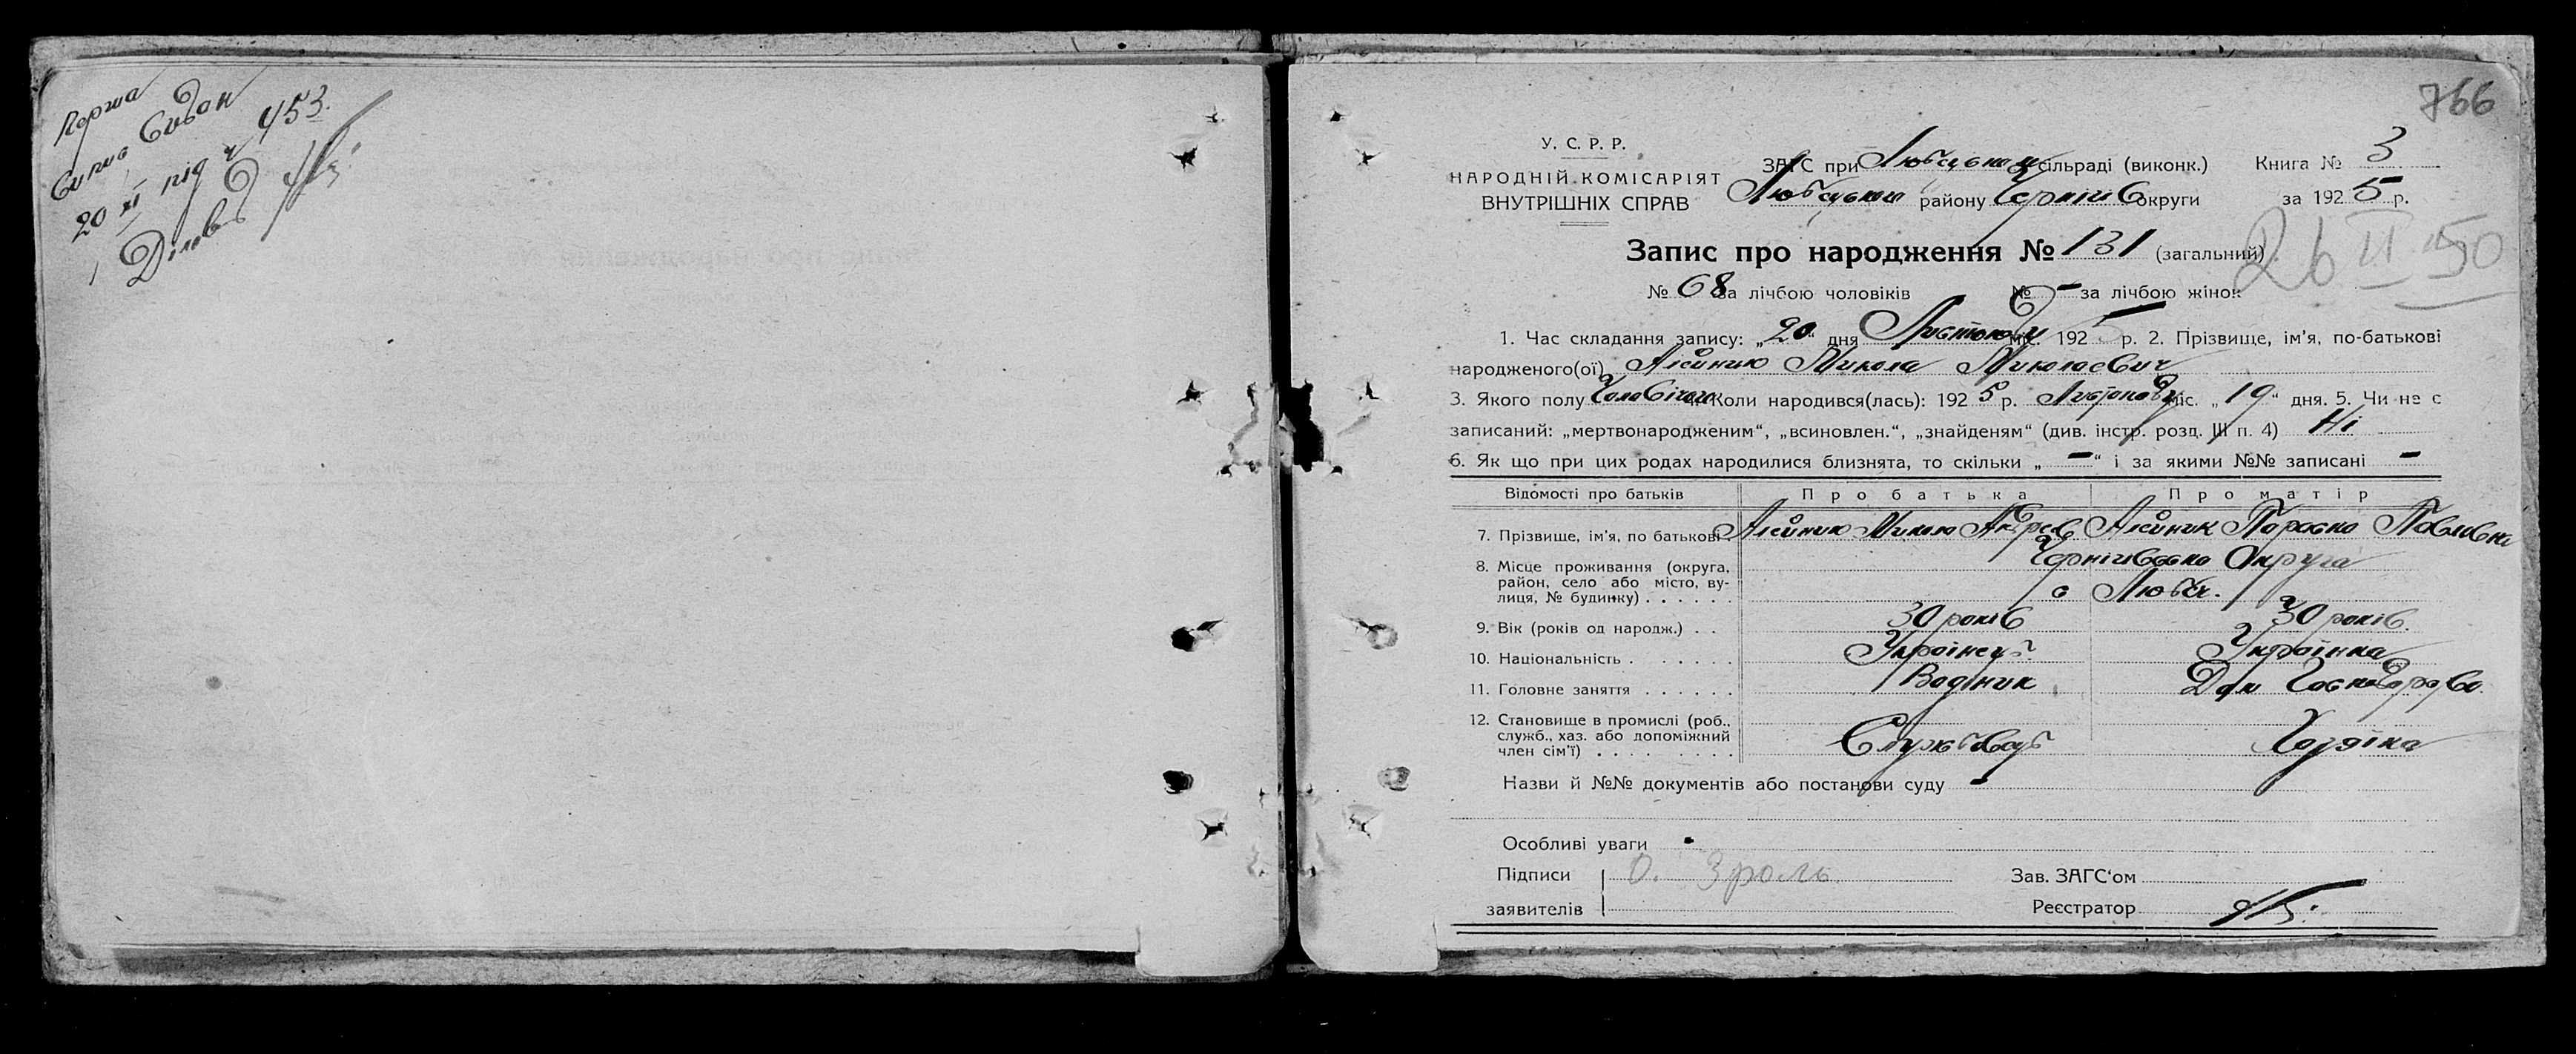 Перша
Випис Видан
20 XI під ч 453.
Діловод
766
У. С. Р. Р.
НАРОДНІЙ КОМІСАРІЯТ
ВНУТРІШНІХ СПРАВ
ЗАГС при Любецьком сільраді (виконк.) Книга № 3
Любецьком району Чернігів округи за 1925 р.
Запис про народження № 131 (загальний)
26 II 50
№ 68 за лічбою чоловіків № – за лічбою жінок
1. Час складання запису: „20“ дня Листопаду міс. 1925 р. 2. Прізвище, ім'я, по-батькові
народженого(ої) Алєйник Микола Миколаевич
3. Якого полу Чоловічого 4. Коли народився(лась): 1925 р. Листопаду міс. „19“ дня. 5. Чи не є
записаний: „мертвонародженим“, „всиновлен.“, „знайденям“ (див. інстр. розд. III п. 4) Ні
6. Як що при цих родах народилися близнята, то скільки „–“ і за якими №№ записані –
Відомості про батьків Про батька Про матір
7. Прізвище, ім'я, по батькові. Алєйник Микола Андреев Алєйник Параска Павловна
8. Місце проживання (округа, Чернігівська Округа
район, село або місто, ву-
лиця, № будинку) . . . . . . с Любеч.
9. Вік (років од народж.) . . 30 років 30 років.
10. Національність . . . . . . Українець. Українка
11. Головне заняття . . . . . . Водник Дом Господарство
12. Становище в промислі (роб.,
служб., хаз. або допоміжний
член сім'ї) . . . . . . . . . Службовець Хозяїка
Назви й №№ документів або постанови суду –
Особливі уваги
Підписи О.
Зав. ЗАГС'ом
заявителів
Реєстратор